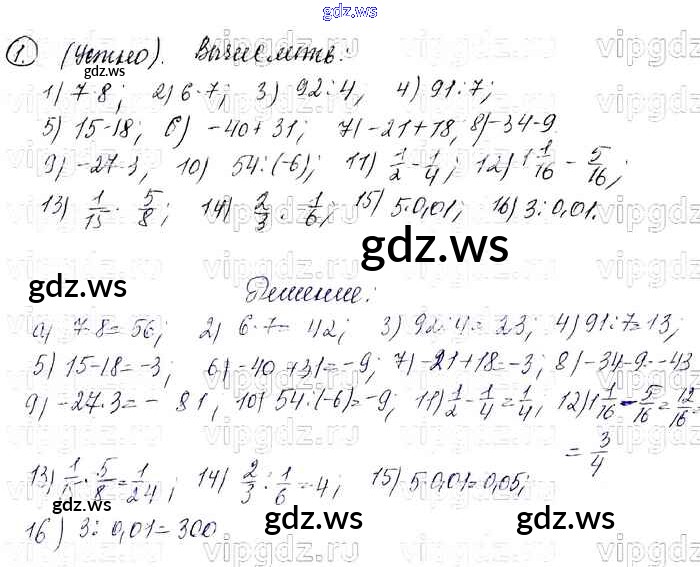 gdz.ws
1. (Устно). Вычислить:
1) 7·8; 2) 6·7; 3) 92:4, 4) 91:7;
5) 15-18; 6) -40+31; 7) -21+18, 8) -34-9.
9) -27·3; 10) 54:(-6); 11) 1/2 - 1/4; 12) 1 1/16 - 5/16;
13) 1/15 · 5/8; 14) 2/3 : 1/6; 15) 5·0,01; 16) 3:0,01.
gdz.ws
Решение:
1) 7·8=56; 2) 6·7=42; 3) 92:4=23; 4) 91:7=13;
5) 15-18=-3; 6) -40+31=-9; 7) -21+18=-3; 8) -34-9=-43
9) -27·3=-81, 10) 54:(-6)=-9; 11) 1/2 - 1/4 = 1/4, 12) 1 1/16 - 5/16 = 12/16 =
= 3/4
13) 1/15 · 5/8 = 1/24; 14) 2/3 : 1/6 = 4; 15) 5·0,01=0,05;
16) 3:0,01=300
gdz.ws gdz.ws